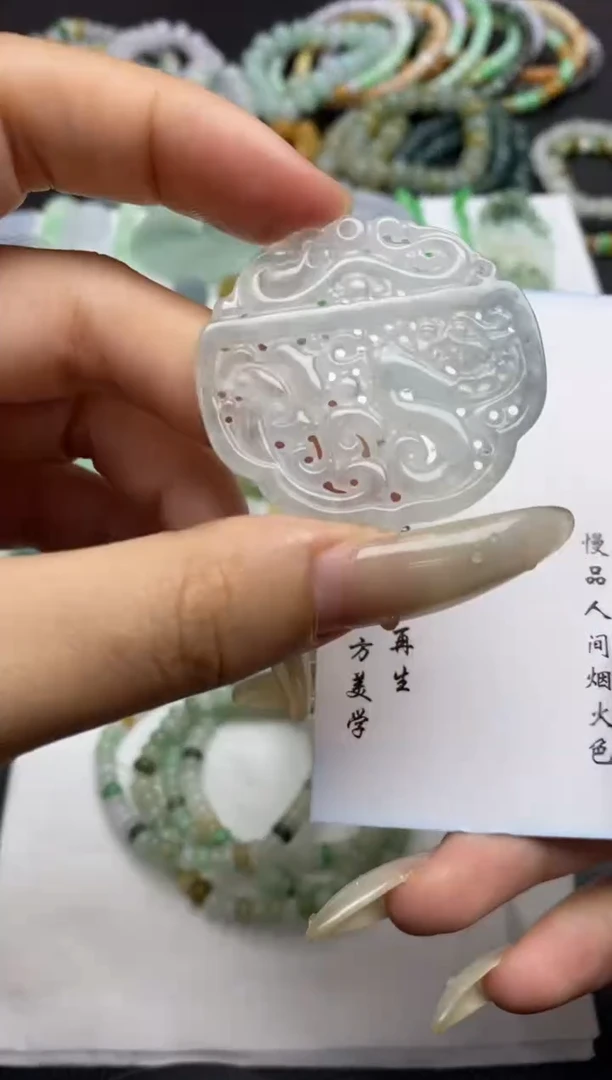 慢品人间烟火色
再生
方美学